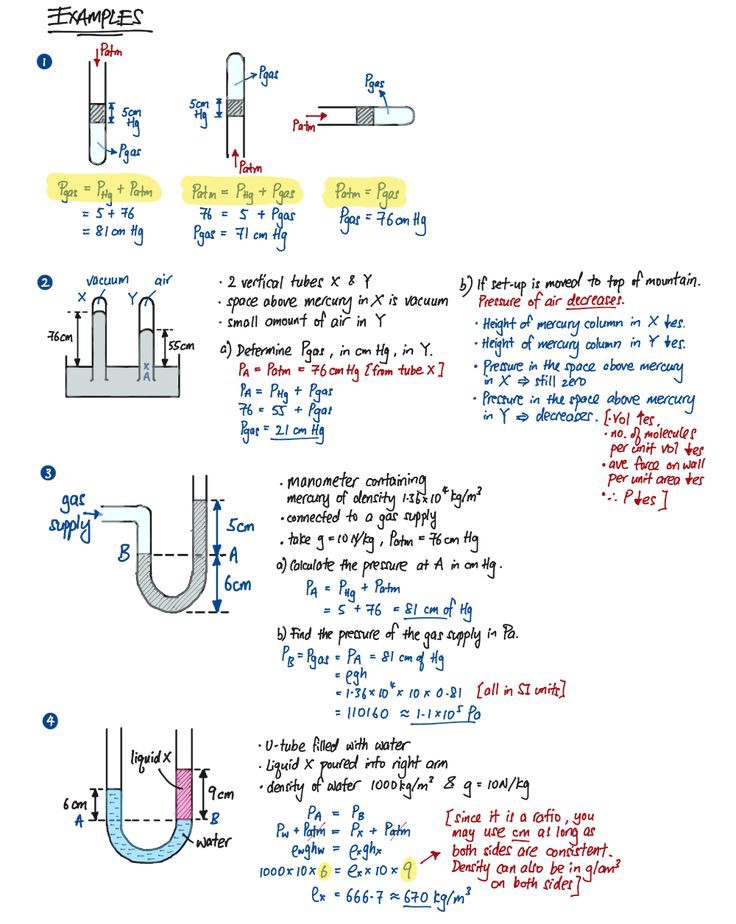 EXAMPLES
1
Patm
5cm
Hg
Pgas
Pgas = PHg + Patm
= 5 + 76
= 81 cm Hg
Pgas
5cm
Hg
Patm
Patm = PHg + Pgas
76 = 5 + Pgas
Pgas = 71 cm Hg
Pgas
Patm
Patm = Pgas
Pgas = 76 cm Hg
2
vacuum air
X Y
76cm
55cm
X
A
· 2 vertical tubes X & Y
· space above mercury in X is vacuum
· small amount of air in Y
a) Determine Pgas, in cm Hg, in Y.
PA = Patm = 76 cm Hg [from tube X]
PA = PHg + Pgas
76 = 55 + Pgas
Pgas = 21 cm Hg
b) If set-up is moved to top of mountain.
Pressure of air decreases.
· Height of mercury column in X ↓es.
· Height of mercury column in Y ↓es.
· Pressure in the space above mercury
in X ⇒ still zero
· Pressure in the space above mercury
in Y ⇒ decreases. [· Vol ↑es,
· no. of molecules
per unit vol ↓es
· ave force on wall
per unit area ↓es
· ∴ P↓es]
3
gas
supply
5cm
B A
6cm
· manometer containing
mercury of density 1.36×10⁴ kg/m³
· connected to a gas supply
· take g = 10 N/kg, Patm = 76 cm Hg
a) Calculate the pressure at A in cm Hg.
PA = PHg + Patm
= 5 + 76 = 81 cm of Hg
b) Find the pressure of the gas supply in Pa.
PB = Pgas = PA = 81 cm of Hg
= ρgh
= 1.36×10⁴ × 10 × 0.81 [all in SI units]
= 110160 ≈ 1.1×10⁵ Pa
4
liquid X
6cm
9cm
A B
water
· U-tube filled with water
· Liquid X poured into right arm
· density of water 1000 kg/m³ & g = 10N/kg
PA = PB
Pw + Patm = Px + Patm
ρwghw = ρxghx
1000 × 10 × 6 = ρx × 10 × 9
ρx = 666.7 ≈ 670 kg/m³
[since it is a ratio, you
may use cm as long as
both sides are consistent.
Density can also be in g/cm³
on both sides]